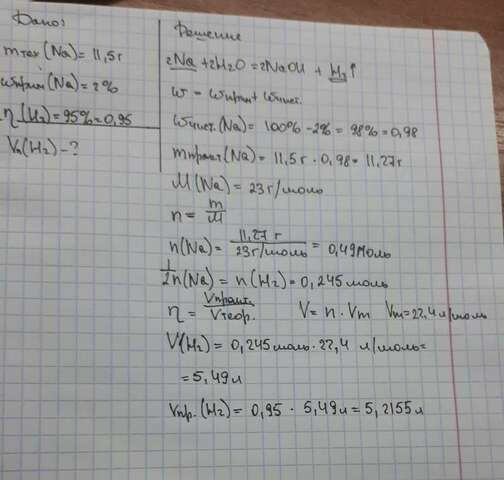 Дано:
mтех(Na) = 11,5 г
ωприм(Na) = 2%
η(H₂) = 95% = 0,95
Vп(H₂) - ?
Решение
2Na + 2H₂O = 2NaOH + H₂↑
ω = ωприм + ωчист.
ωчист.(Na) = 100% - 2% = 98% = 0,98
mпракт(Na) = 11,5 г · 0,98 = 11,27 г
M(Na) = 23 г/моль
n = m/M
n(Na) = 11,27 г / 23 г/моль = 0,49 моль
1/2 n(Na) = n(H₂) = 0,245 моль
η = Vпракт. / Vтеор. V = n · Vm Vm = 22,4 л/моль
V(H₂) = 0,245 моль · 22,4 л/моль =
= 5,49 л
Vпр.(H₂) = 0,95 · 5,49 л = 5,2155 л